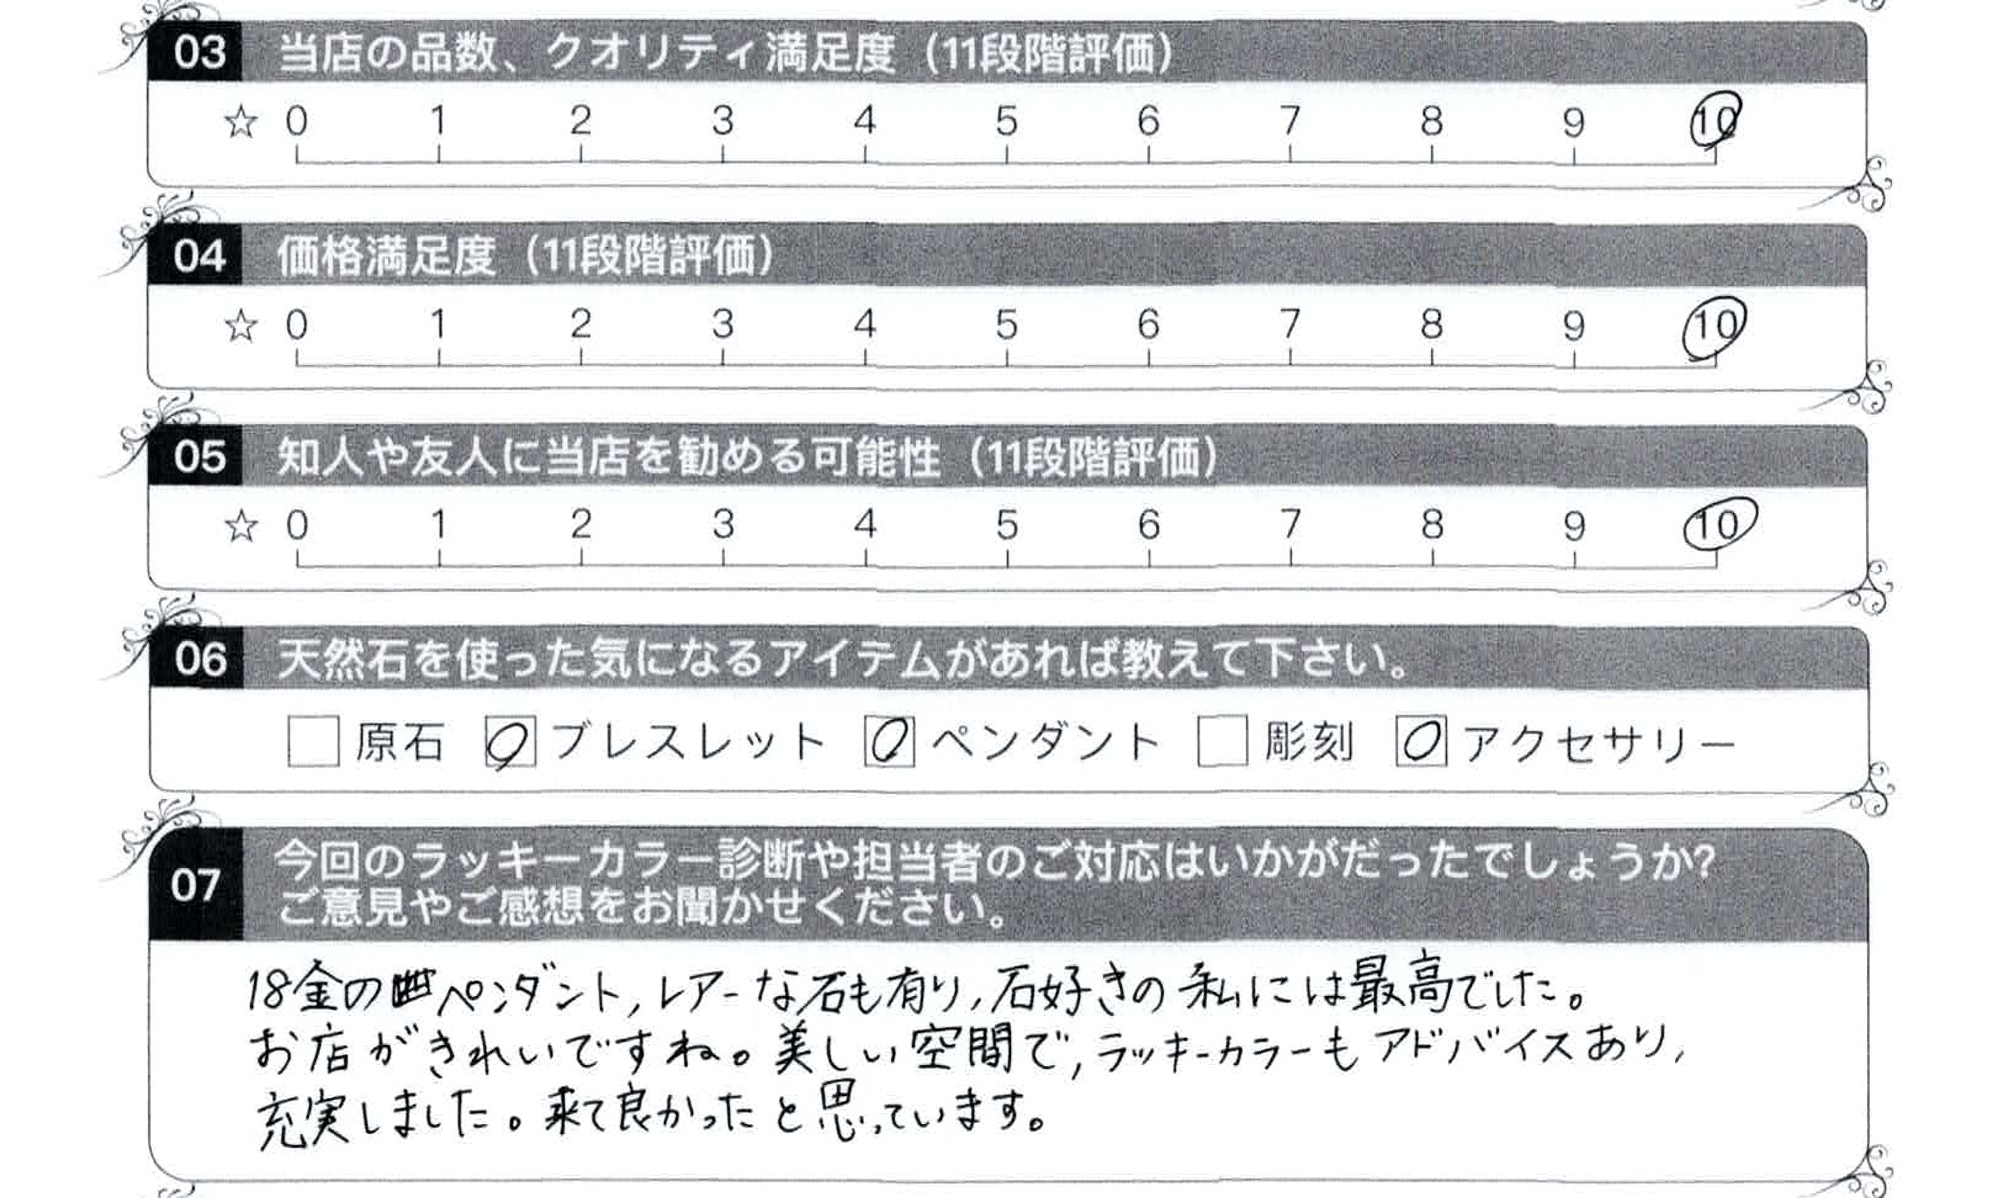 03 当店の品数、クオリティ満足度（11段階評価）
☆ 0 1 2 3 4 5 6 7 8 9 10
04 価格満足度（11段階評価）
☆ 0 1 2 3 4 5 6 7 8 9 10
05 知人や友人に当店を勧める可能性（11段階評価）
☆ 0 1 2 3 4 5 6 7 8 9 10
06 天然石を使った気になるアイテムがあれば教えて下さい。
原石 ブレスレット ペンダント 彫刻 アクセサリー
07 今回のラッキーカラー診断や担当者のご対応はいかがだったでしょうか?
ご意見やご感想をお聞かせください。
18金のペンダント, レアーな石も有り, 石好きの私には最高でした。
お店がきれいですね。美しい空間で, ラッキーカラーもアドバイスあり,
充実しました。来て良かったと思っています。